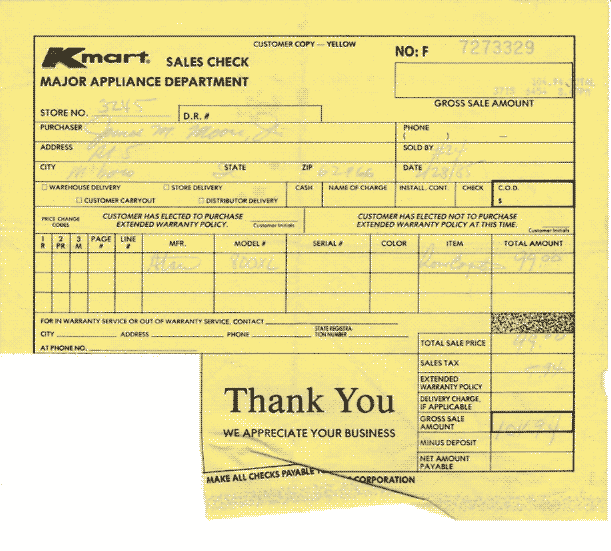 CUSTOMER COPY — YELLOW
Kmart® SALES CHECK NO: F 7273329
MAJOR APPLIANCE DEPARTMENT
GROSS SALE AMOUNT
STORE NO. 3245 D.R. #
PURCHASER James M. Moon, Jr. PHONE ( ) —
ADDRESS SOLD BY
CITY STATE ZIP 62966 DATE
☐ WAREHOUSE DELIVERY ☐ STORE DELIVERY CASH NAME OF CHARGE INSTALL. CONT. CHECK C.O.D.
☐ CUSTOMER CARRYOUT ☐ DISTRIBUTOR DELIVERY $
PRICE CHANGE CODES CUSTOMER HAS ELECTED TO PURCHASE EXTENDED WARRANTY POLICY. Customer Initials CUSTOMER HAS ELECTED NOT TO PURCHASE EXTENDED WARRANTY POLICY AT THIS TIME. Customer Initials
1 R 2 PR 3 M PAGE # LINE # MFR. MODEL # SERIAL # COLOR ITEM TOTAL AMOUNT
Atari 800XL 99.00
FOR IN WARRANTY SERVICE OR OUT OF WARRANTY SERVICE, CONTACT
CITY ADDRESS PHONE STATE REGISTRATION NUMBER
AT PHONE NO.
TOTAL SALE PRICE 99.00
SALES TAX 5.94
EXTENDED WARRANTY POLICY
DELIVERY CHARGE, IF APPLICABLE
GROSS SALE AMOUNT 104.94
MINUS DEPOSIT
NET AMOUNT PAYABLE
Thank You
WE APPRECIATE YOUR BUSINESS
MAKE ALL CHECKS PAYABLE CORPORATION